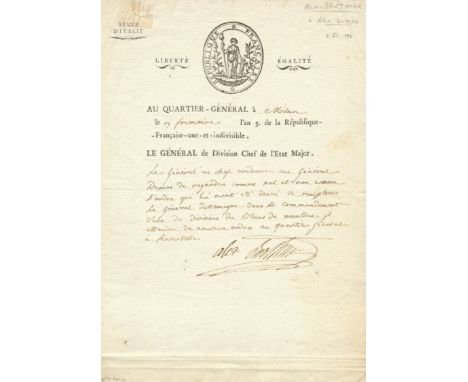 ARMÉE
D'ITALIE
RÉPUBLIQUE FRANÇAISE
LIBERTÉ
ÉGALITÉ
AU QUARTIER-GÉNÉRAL à Milan
le 19 frimaire l'an 5. de la République-
-Française-une-et-indivisible.
LE GÉNÉRAL de Division Chef de l'Etat Major.
Le Général en chef ordonne au Général
Dumas de regarder comme nul et non avenu
l'ordre qui lui avait été donné de remplacer
le Général Dallemagne dans le commandement
de la division du Blocus de mantoue, il
attendra de nouveaux ordres au quartier général
à
alex Berthier